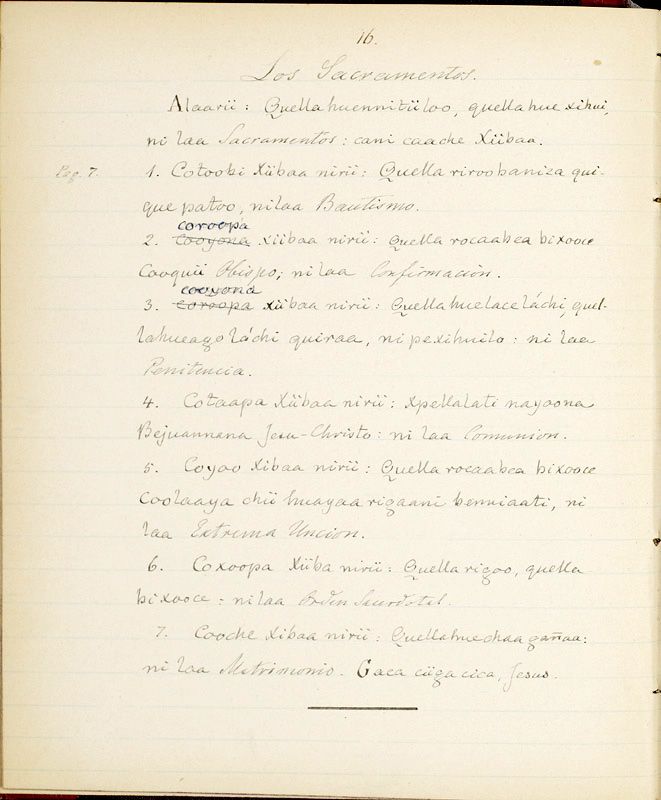 16.
Los Sacramentos.
Alaarii: Quellahuennitüloo, quellahue xihui,
ni laa Sacramentos: cani caache Xiibaa.
Pag. 7. 1. Cotoobi Xiibaa nirii: Quella riroobaniza qui-
que patoo, ni laa Bautismo.
coroopa
2. Cooyona xiibaa nirii: Quella rocaabea bixooce
Cooquii Obispo; ni laa Confirmacion.
cooyona
3. Coroopa xiibaa nirii: Quellahuelaceláchi, quel-
lahueagoláchi quiraa, ni pexihuilo: ni laa
Penitencia.
4. Cotaapa Xiibaa nirii: Xpellalati nayoona
Bejuannana Jesu-Christo: ni laa Comunion.
5. Coyoo Xibaa nirii: Quella rocaabea bixooce
coolaaya chii huayaa rigaani benniaati, ni
laa Extrema Uncion.
6. Coxoopa Xiiba nirii: Quella rigoo, quella
bixooce: ni laa Orden Sacerdotal.
7. Cooche Xibaa nirii: Quellahuechaagañaa:
ni laa Matrimonio. Gaca ciiga cica, Jesus.